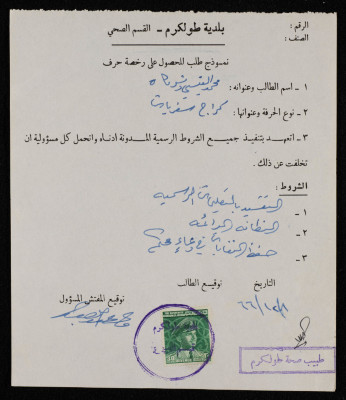 بلدية طولكرم - القسم الصحي
الرقم :
الصنف :
نموذج طلب للحصول على رخصة حرف
١ - اسم الطالب وعنوانه : محمد
٢ - نوع الحرفة وعنوانها : كراج سفريات
٣ - اتعهد بتنفيذ جميع الشروط الرسمية المدونة ادناه واتحمل كل مسؤولية ان
تخلفت عن ذلك .
الشروط :
١ - التقيد بالتعليمات الرسمية
٢ - النظافة الدائمة
٣ - حفظ النفايات في وعاء محكم
التاريخ
توقيع الطالب
توقيع المفتش المسؤول
طبيب صحة طولكرم